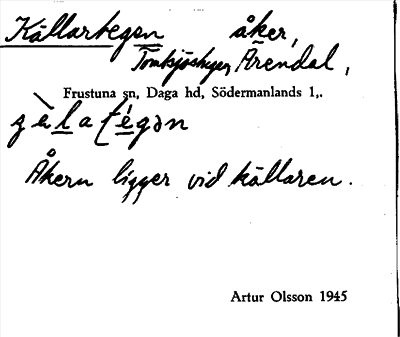 Källartegen åker,
Ärendal,
Frustuna sn, Daga hd, Södermanlands l,.
Åkern ligger vid källaren.
Artur Olsson 1945